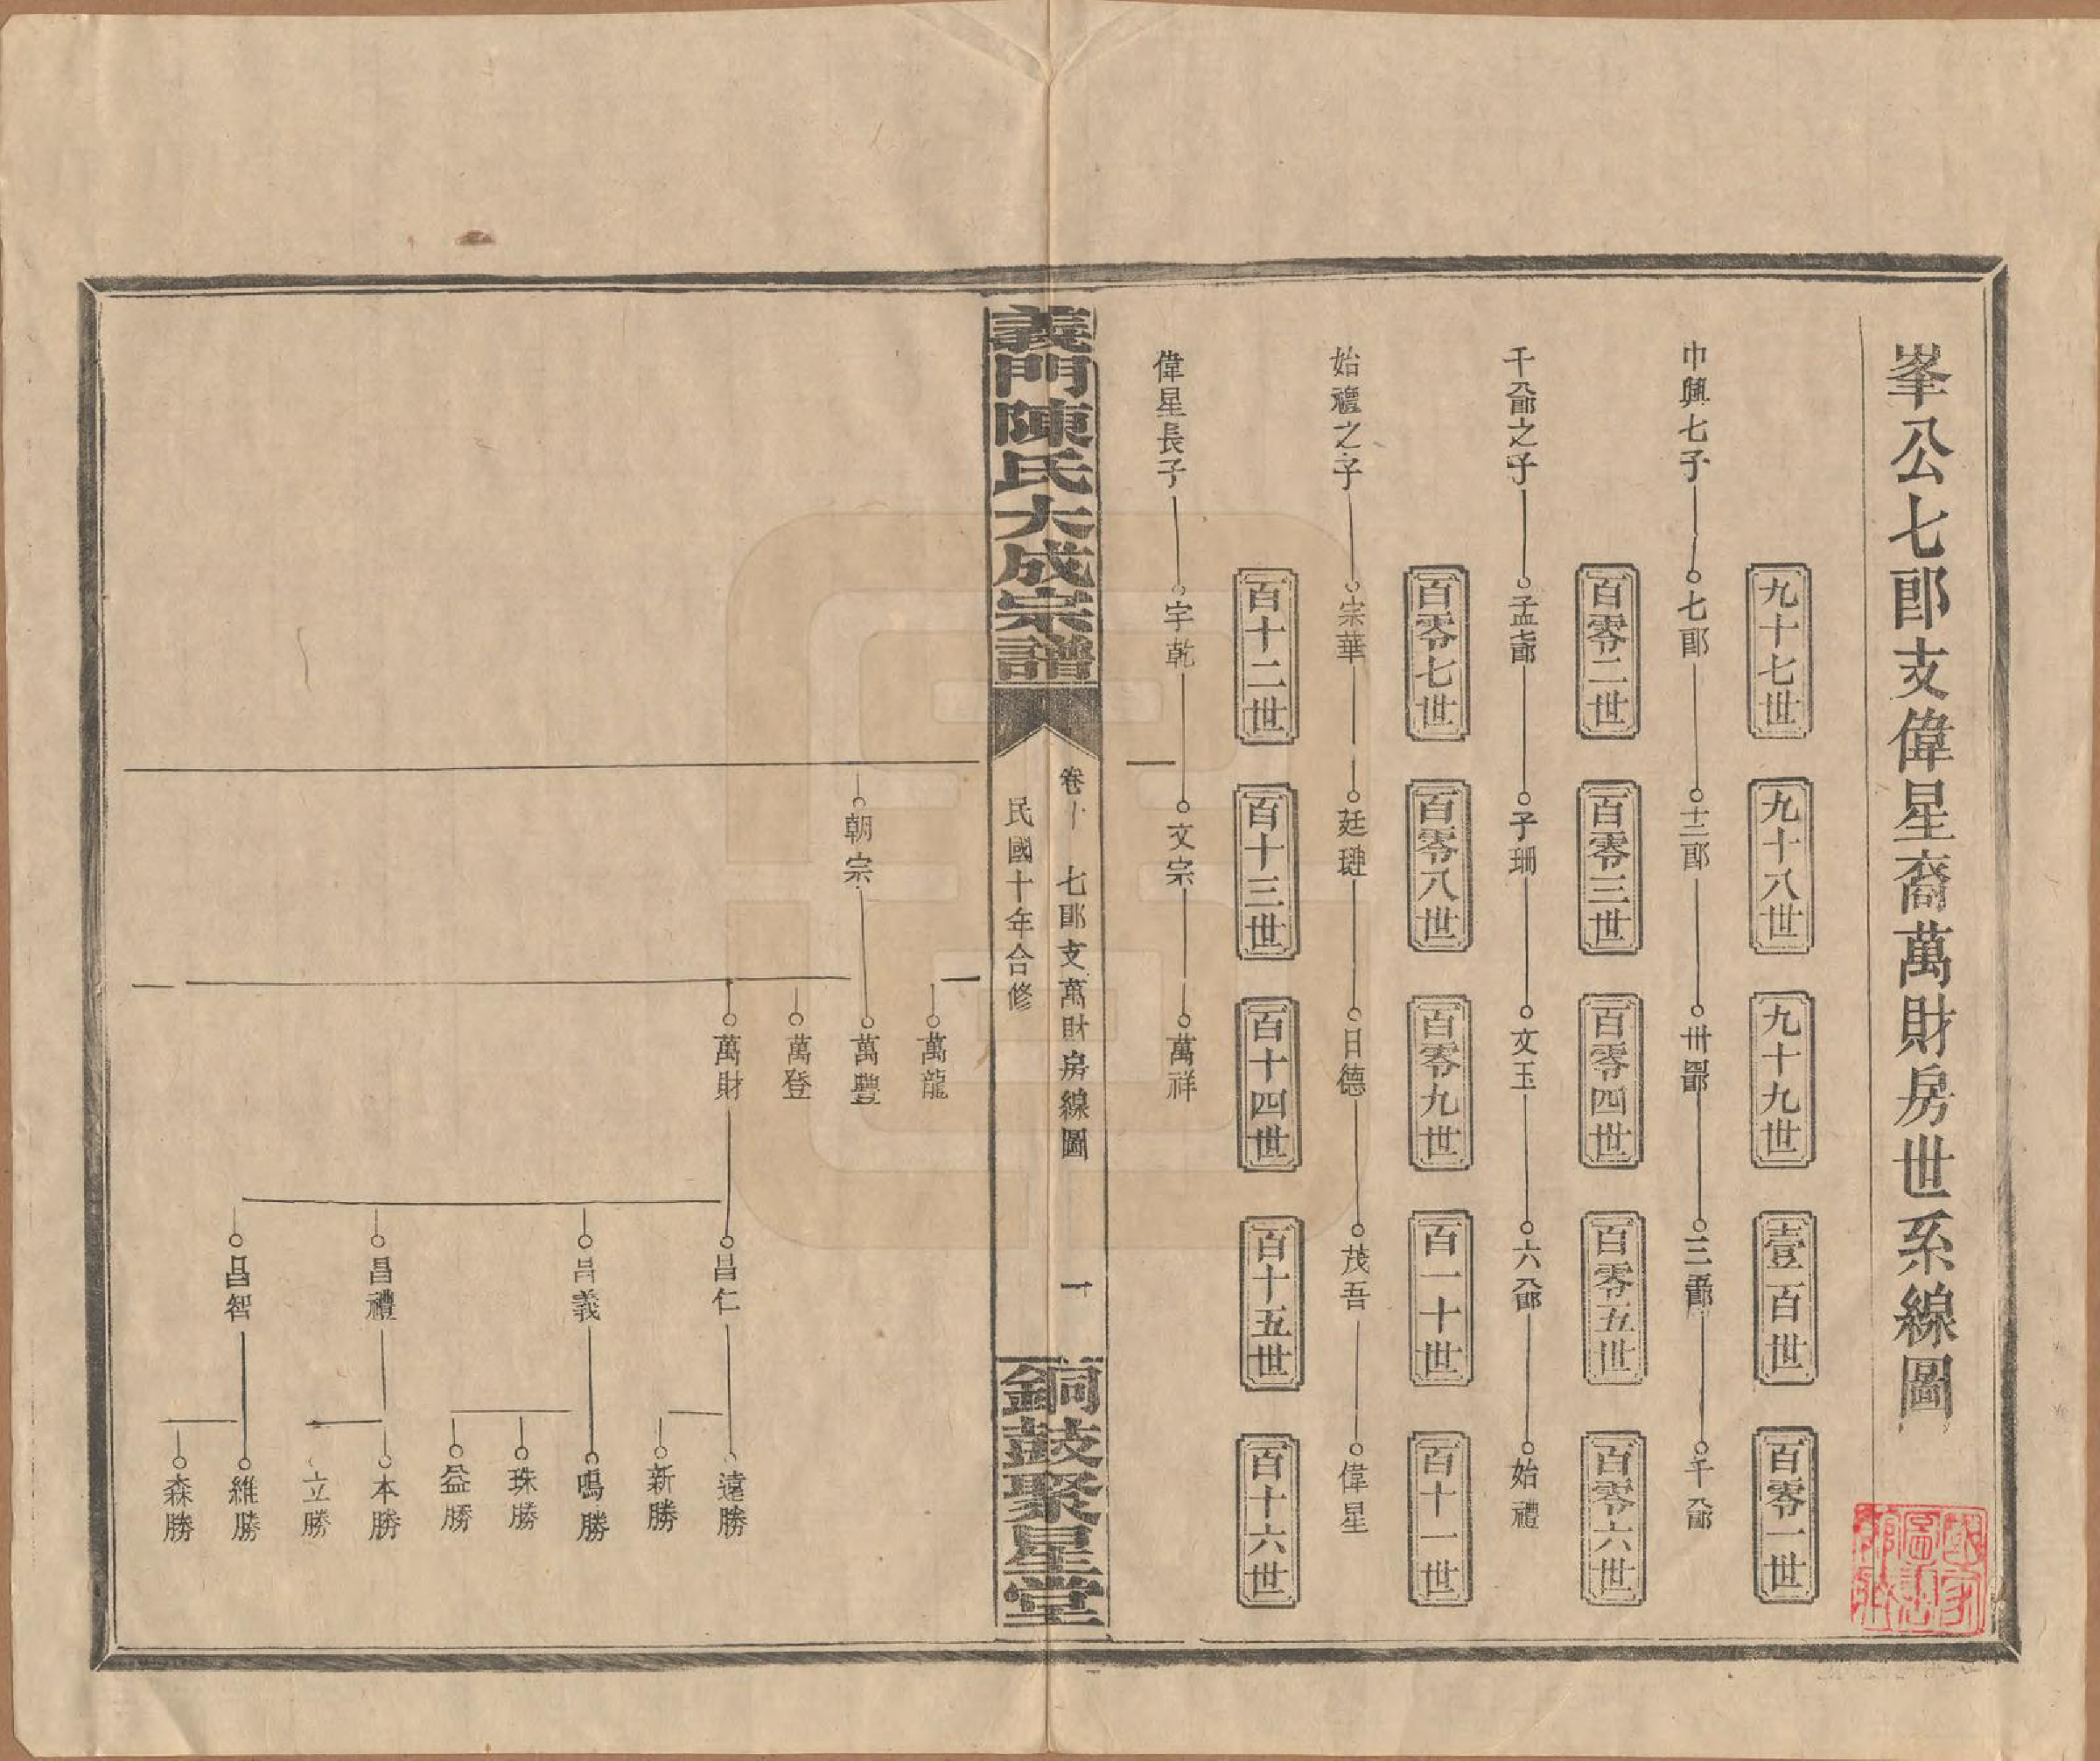 峯公七郎支偉星裔萬財房世系線圖
九十七世 九十八世 九十九世 壹百世 百零一世
巾興七子 七郎 十二郎 卅四郎 三五郎 千八郎
百零二世 百零三世 百零四世 百零五世 百零六世
千八郎之子 孟七郎 子珊 文玉 六八郎 始禮
百零七世 百零八世 百零九世 百一十世 百十一世
始禮之子 宗華 廷璉 日德 茂吾 偉星
百十二世 百十三世 百十四世 百十五世 百十六世
偉星長子 宇乾 文宗 萬祥
義門陳氏大成宗譜
卷十 七郎支萬財房線圖 一
民國十年合修
銅鼓聚星堂
萬龍
朝宗 萬豐
萬登
萬財 昌仁 遠勝
新勝
昌義 鳴勝
珠勝
益勝
昌禮 本勝
立勝
昌智 維勝
森勝